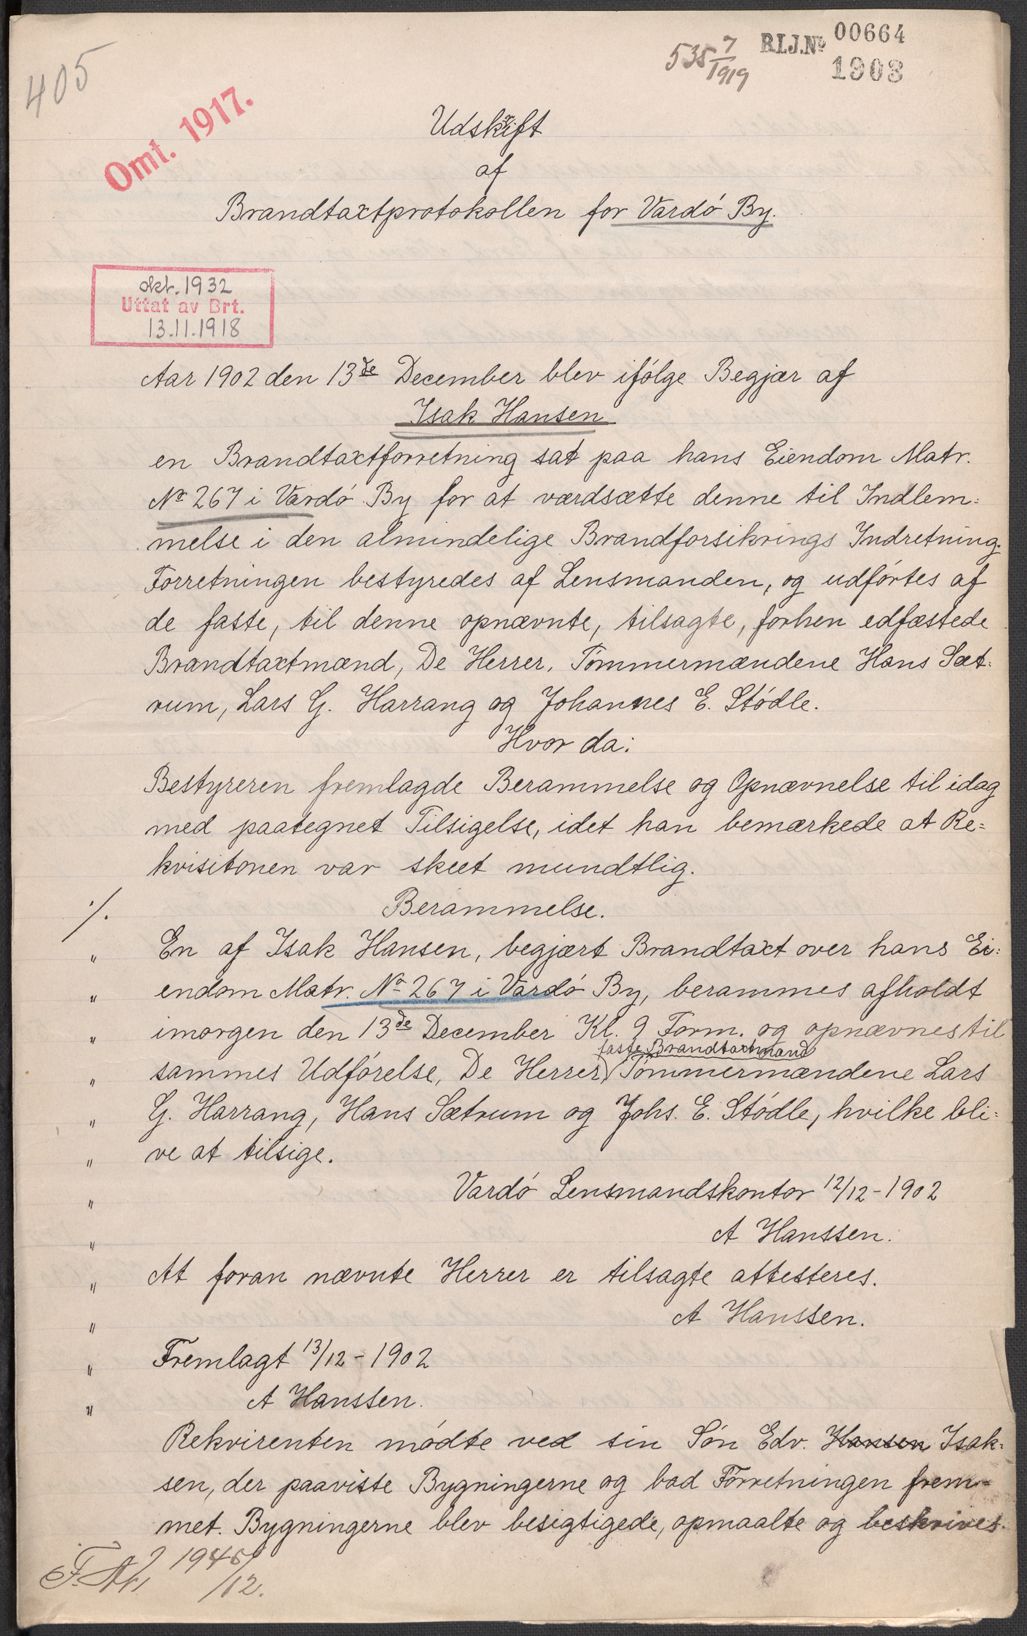 405
535 7/1919
B.I.J.No 00664
1903
Omt. 1917.
Udskrift
af
Brandtaxtprotokollen for Vardö By.
okt. 1932
Uttat av Brt.
13.11.1918
Aar 1902 den 13de December blev ifölge Begjær af
Isak Hansen
en Brandtaxtforretning sat paa hans Eiendom Matr.
No 267 i Vardö By for at værdsætte denne til Indlem=
melse i den almindelige Brandforsikrings Indretning.
Forretningen bestyredes af Lensmanden, og udförtes af
de faste, til denne opnævnte, tilsagte, forhen edfæstede
Brandtaxtmænd, De Herrer, Tömmermændene Hans Sæt=
rum, Lars G. Harrang og Johannes E. Stödle.
Hvor da:
Bestyreren fremlagde Berammelse og Opnævnelse til idag
med paategnet Tilsigelse, idet han bemærkede at Re=
kvisitonen var skeet mundtlig.
./. Berammelse.
" En af Isak Hansen, begjært Brandtaxt over hans Ei=
" endom Matr. No 267 i Vardö By, berammes afholdt
" imorgen den 13de December Kl. 9 Form. og opnævnes til
faste Brandtaxtmænd
" sammes Udförelse, De Herrer Tömmermændene Lars
" G. Harrang, Hans Sætrum og Johs. E. Stödle, hvilke bli=
" ve at tilsige.
" Vardö Lensmandskontor 12/12-1902
" A Hanssen.
" At foran nævnte Herrer er tilsagte attesteres.
" A Hanssen.
" Fremlagt 13/12-1902
" A Hanssen.
Rekvirenten mödte ved sin Sön Edv. Hansen Isak=
sen, der paaviste Bygningerne og bad Forretningen frem=
met. Bygningerne blev besigtigede, opmaalte og beskrives.
1945
/12.